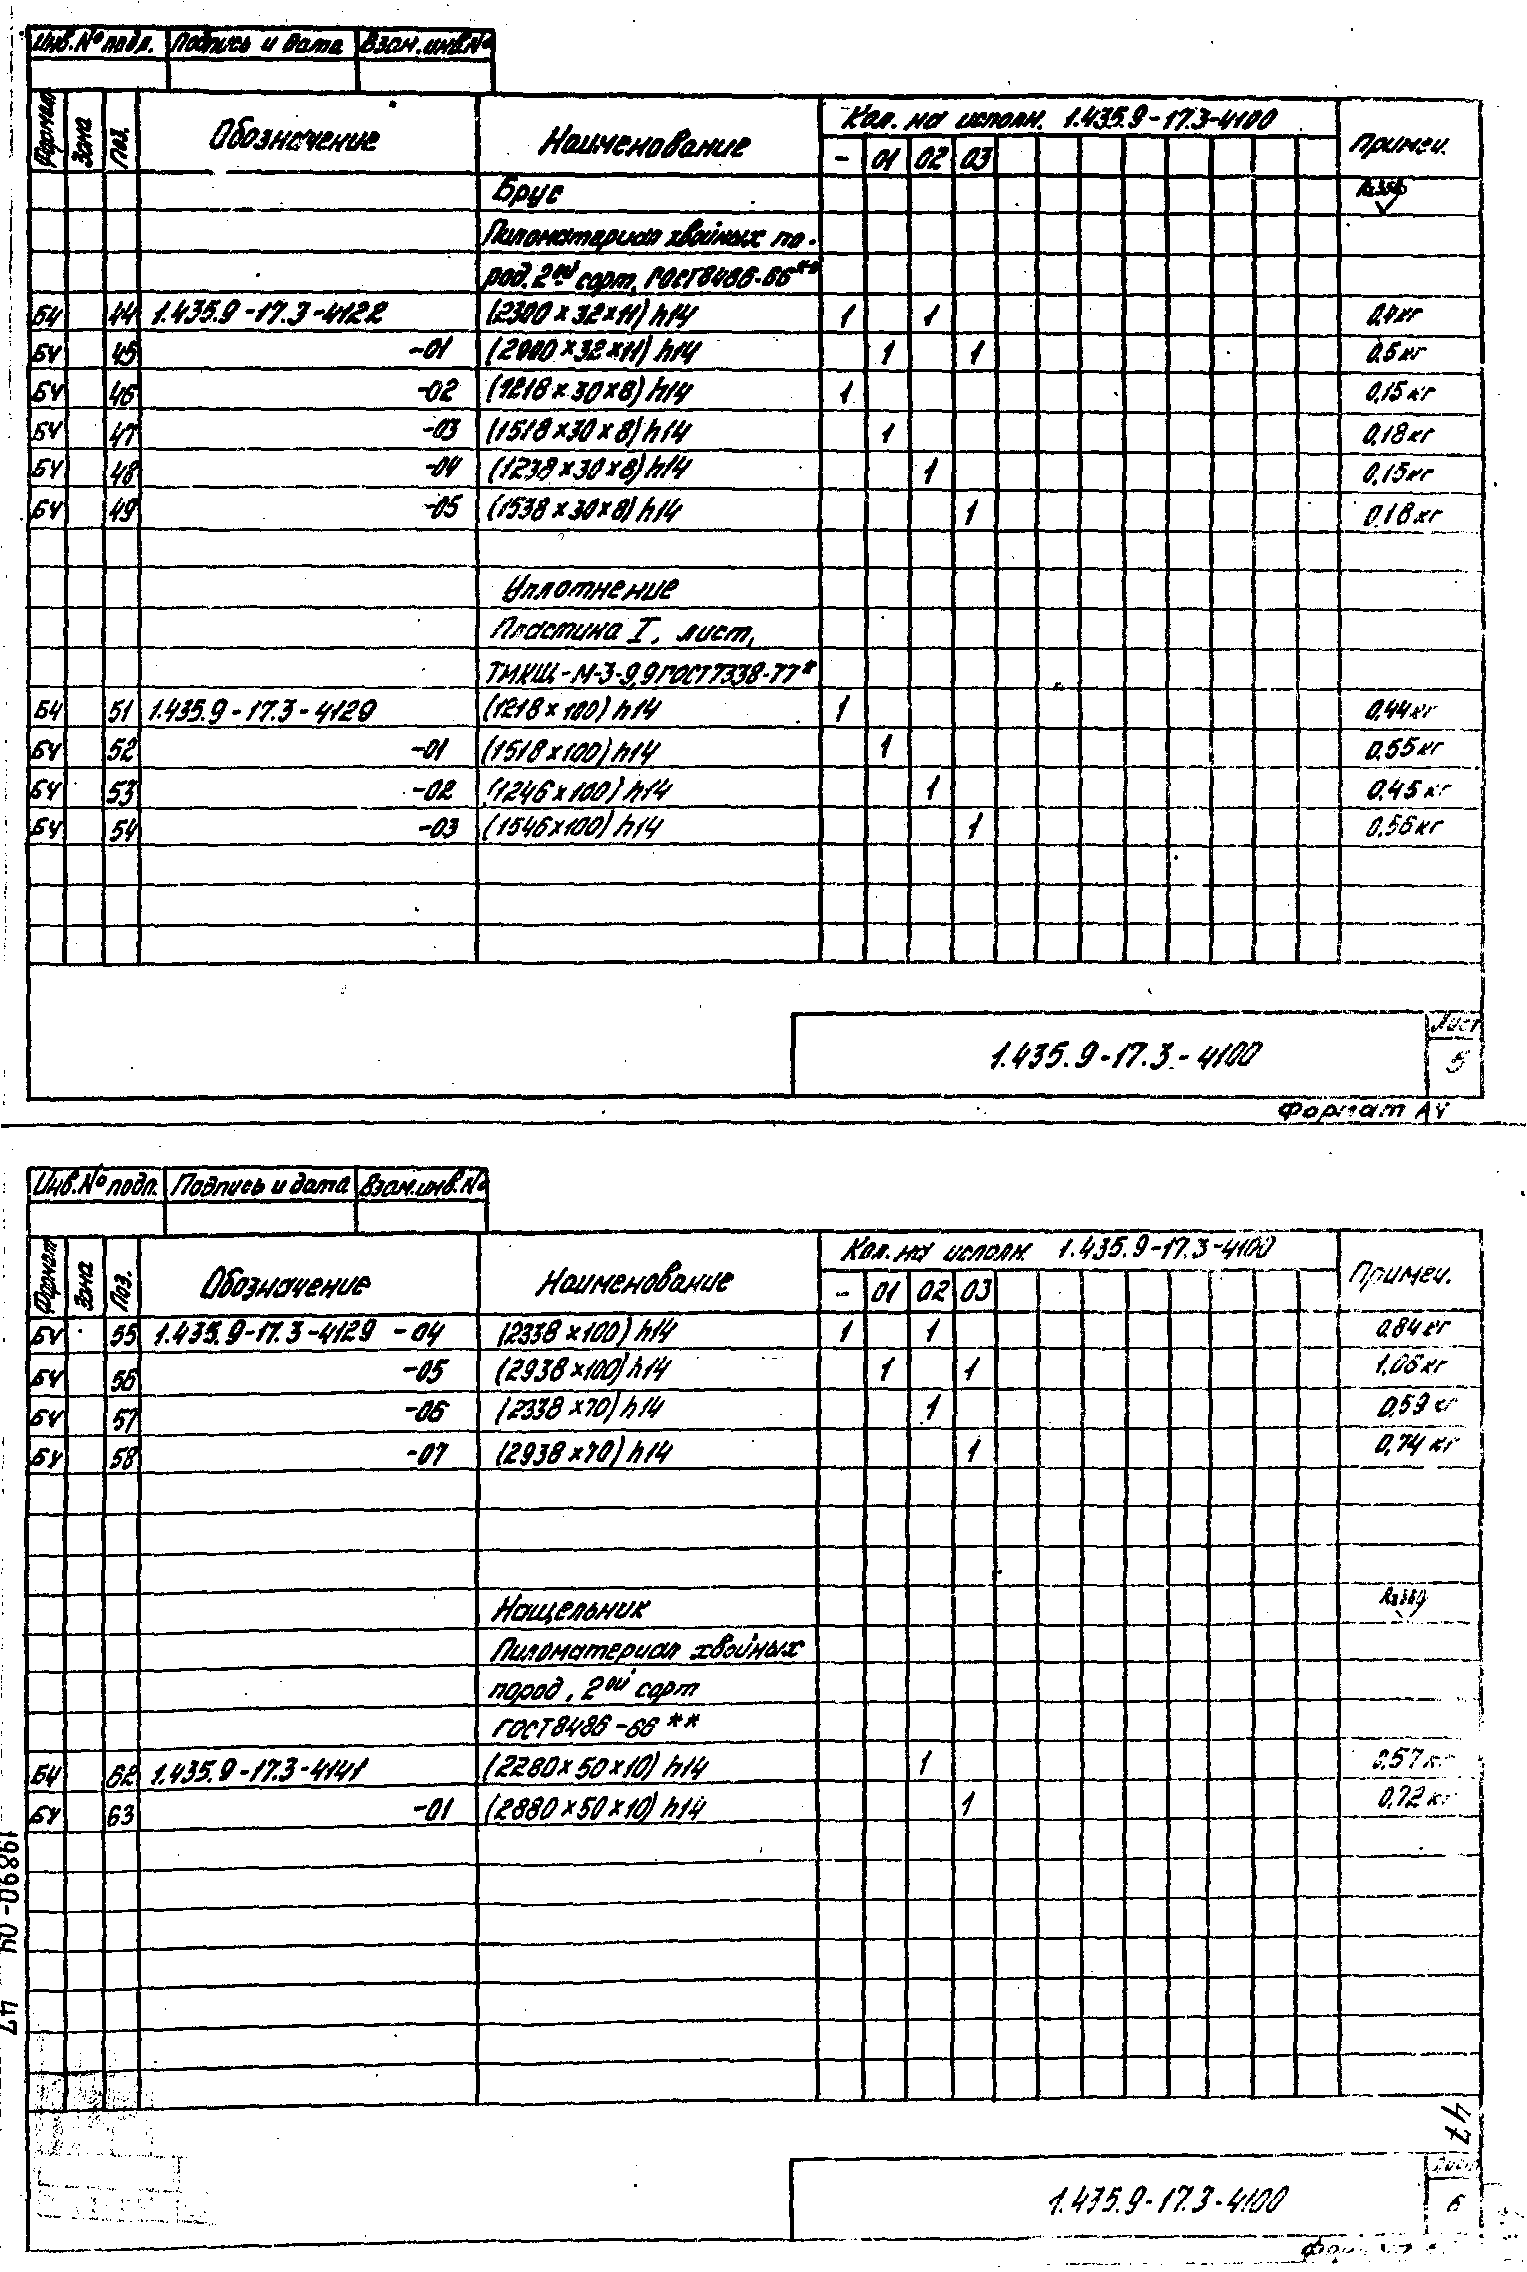 Инв.№ подл. Подпись и дата Взам.инв.№
Формат Зона Поз. Обозначение Наименование Кол. на исполн. 1.435.9-17.3-4100 Примеч.
- 01 02 03
Брус
Пиломатериал хвойных по-
род. 2ой сорт, ГОСТ8486-66**
БЧ 44 1.435.9-17.3-4122 (2300×32×11)h14 1 1 0,4кг
БЧ 45 -01 (2900×32×11)h14 1 1 0,5кг
БЧ 46 -02 (1218×30×8)h14 1 0,15кг
БЧ 47 -03 (1518×30×8)h14 1 0,18кг
БЧ 48 -04 (1238×30×8)h14 1 0,15кг
БЧ 49 -05 (1538×30×8)h14 1 0,18кг
Уплотнение
Пластина I, лист,
ТМКЩ-М-3-9,9 ГОСТ7338-77*
БЧ 51 1.435.9-17.3-4129 (1218×100)h14 1 0,44кг
БЧ 52 -01 (1518×100)h14 1 0,55кг
БЧ 53 -02 (1246×100)h14 1 0,45кг
БЧ 54 -03 (1546×100)h14 1 0,56кг
Лист
1.435.9-17.3-4100 5
Формат А4
Инв.№ подл. Подпись и дата Взам.инв.№
Формат Зона Поз. Обозначение Наименование Кол. на исполн. 1.435.9-17.3-4100 Примеч.
- 01 02 03
БЧ 55 1.435.9-17.3-4129 -04 (2338×100)h14 1 1 0,84кг
БЧ 56 -05 (2938×100)h14 1 1 1,06кг
БЧ 57 -06 (2338×70)h14 1 0,59кг
БЧ 58 -07 (2938×70)h14 1 0,74кг
Нащельник
Пиломатериал хвойных
пород, 2ой сорт
ГОСТ8486-66**
БЧ 62 1.435.9-17.3-4141 (2280×50×10)h14 1 0,57кг
БЧ 63 -01 (2880×50×10)h14 1 0,72кг
19890-04 47
47
Лист
1.435.9-17.3-4100 6